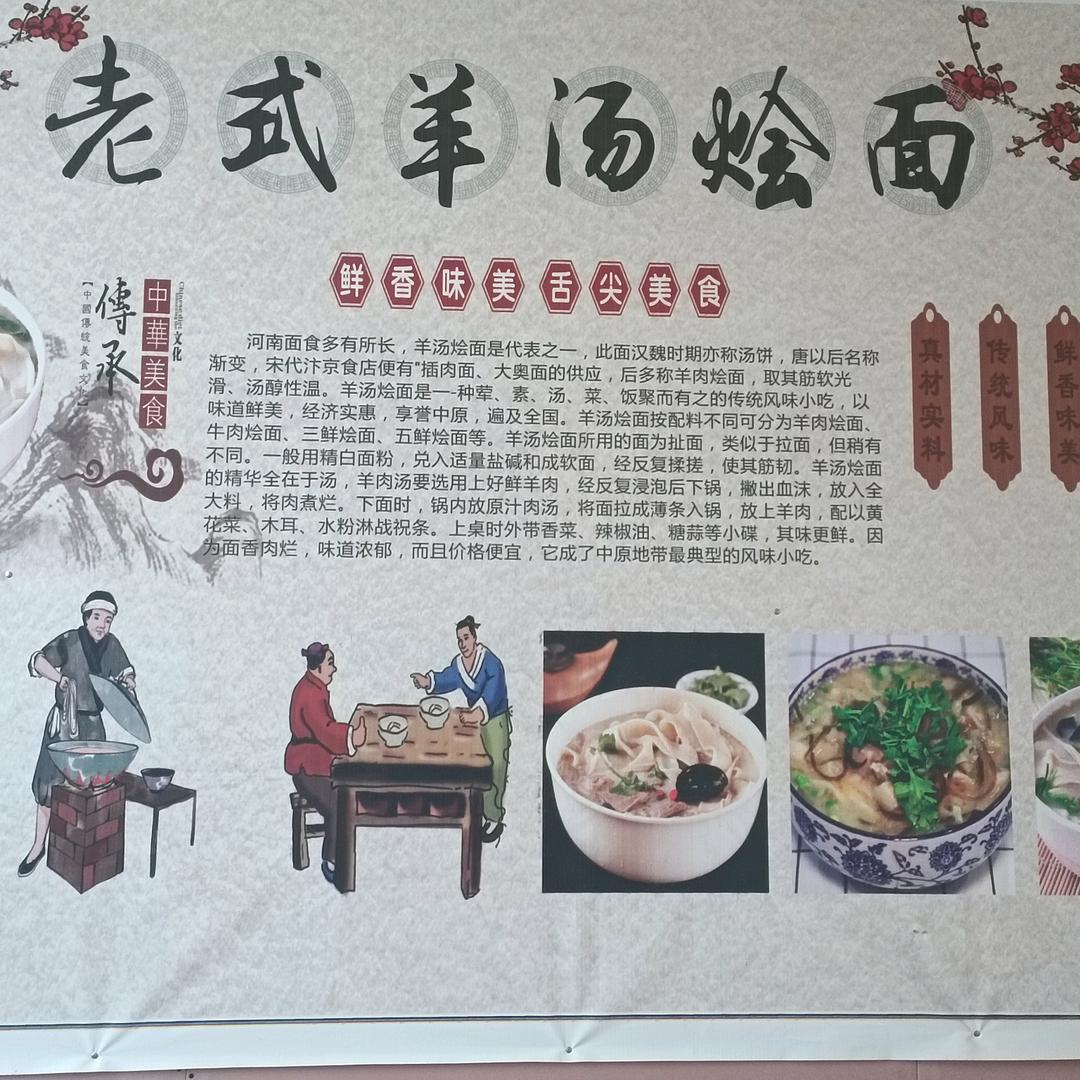 老式羊汤烩面
鲜香味美 舌尖美食
Chinese diet 文化
中華美食
傳承
【中國傳統美食文化】
河南面食多有所长，羊汤烩面是代表之一，此面汉魏时期亦称汤饼，唐以后名称
渐变，宋代汴京食店便有"插肉面、大奥面的供应，后多称羊肉烩面，取其筋软光
滑、汤醇性温。羊汤烩面是一-种荤、素、汤、菜、饭聚而有之的传统风味小吃，以
味道鲜美，经济实惠，享誉中原，遍及全国。羊汤烩面按配料不同可分为羊肉烩面、
牛肉烩面、三鲜烩面、五鲜烩面等。羊汤烩面所用的面为扯面，类似于拉面，但稍有
不同。一般用精白面粉，兑入适量盐碱和成软面，经反复揉搓，使其筋韧。羊汤烩面
的精华全在于汤，羊肉汤要选用上好鲜羊肉，经反复浸泡后下锅，撇出血沫，放入全
大料，将肉煮烂。下面时，锅内放原汁肉汤，将面拉成薄条入锅，放上羊肉，配以黄
花菜、木耳、水粉淋战祝条。上桌时外带香菜、辣椒油、糖蒜等小碟，其味更鲜。因
为面香肉烂，味道浓郁，而且价格便宜，它成了中原地带最典型的风味小吃。
真材实料
传统风味
鲜香味美